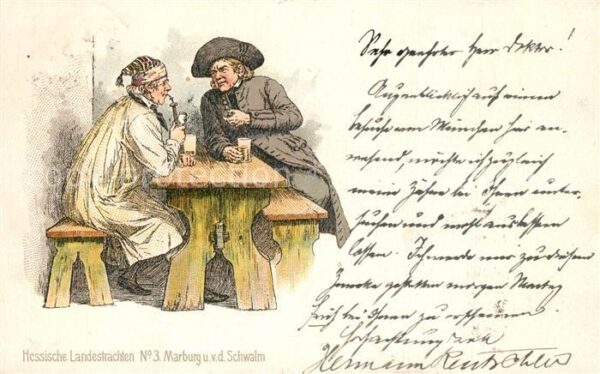 Sehr geehrter Herr Doktor!
Augenblicklich auf einem
Besuche von München hier an-
wesend, möchte ich zugleich
meine Zähne bei Ihnen unter-
suchen und evtl. ausbessern
lassen. Ich werde mir zu diesem
Zwecke gestatten morgen Montag
früh bei Ihnen zu erscheinen.
Hochachtungsvoll
Hermann
Hessische Landestrachten No 3. Marburg u. v. d. Schwalm